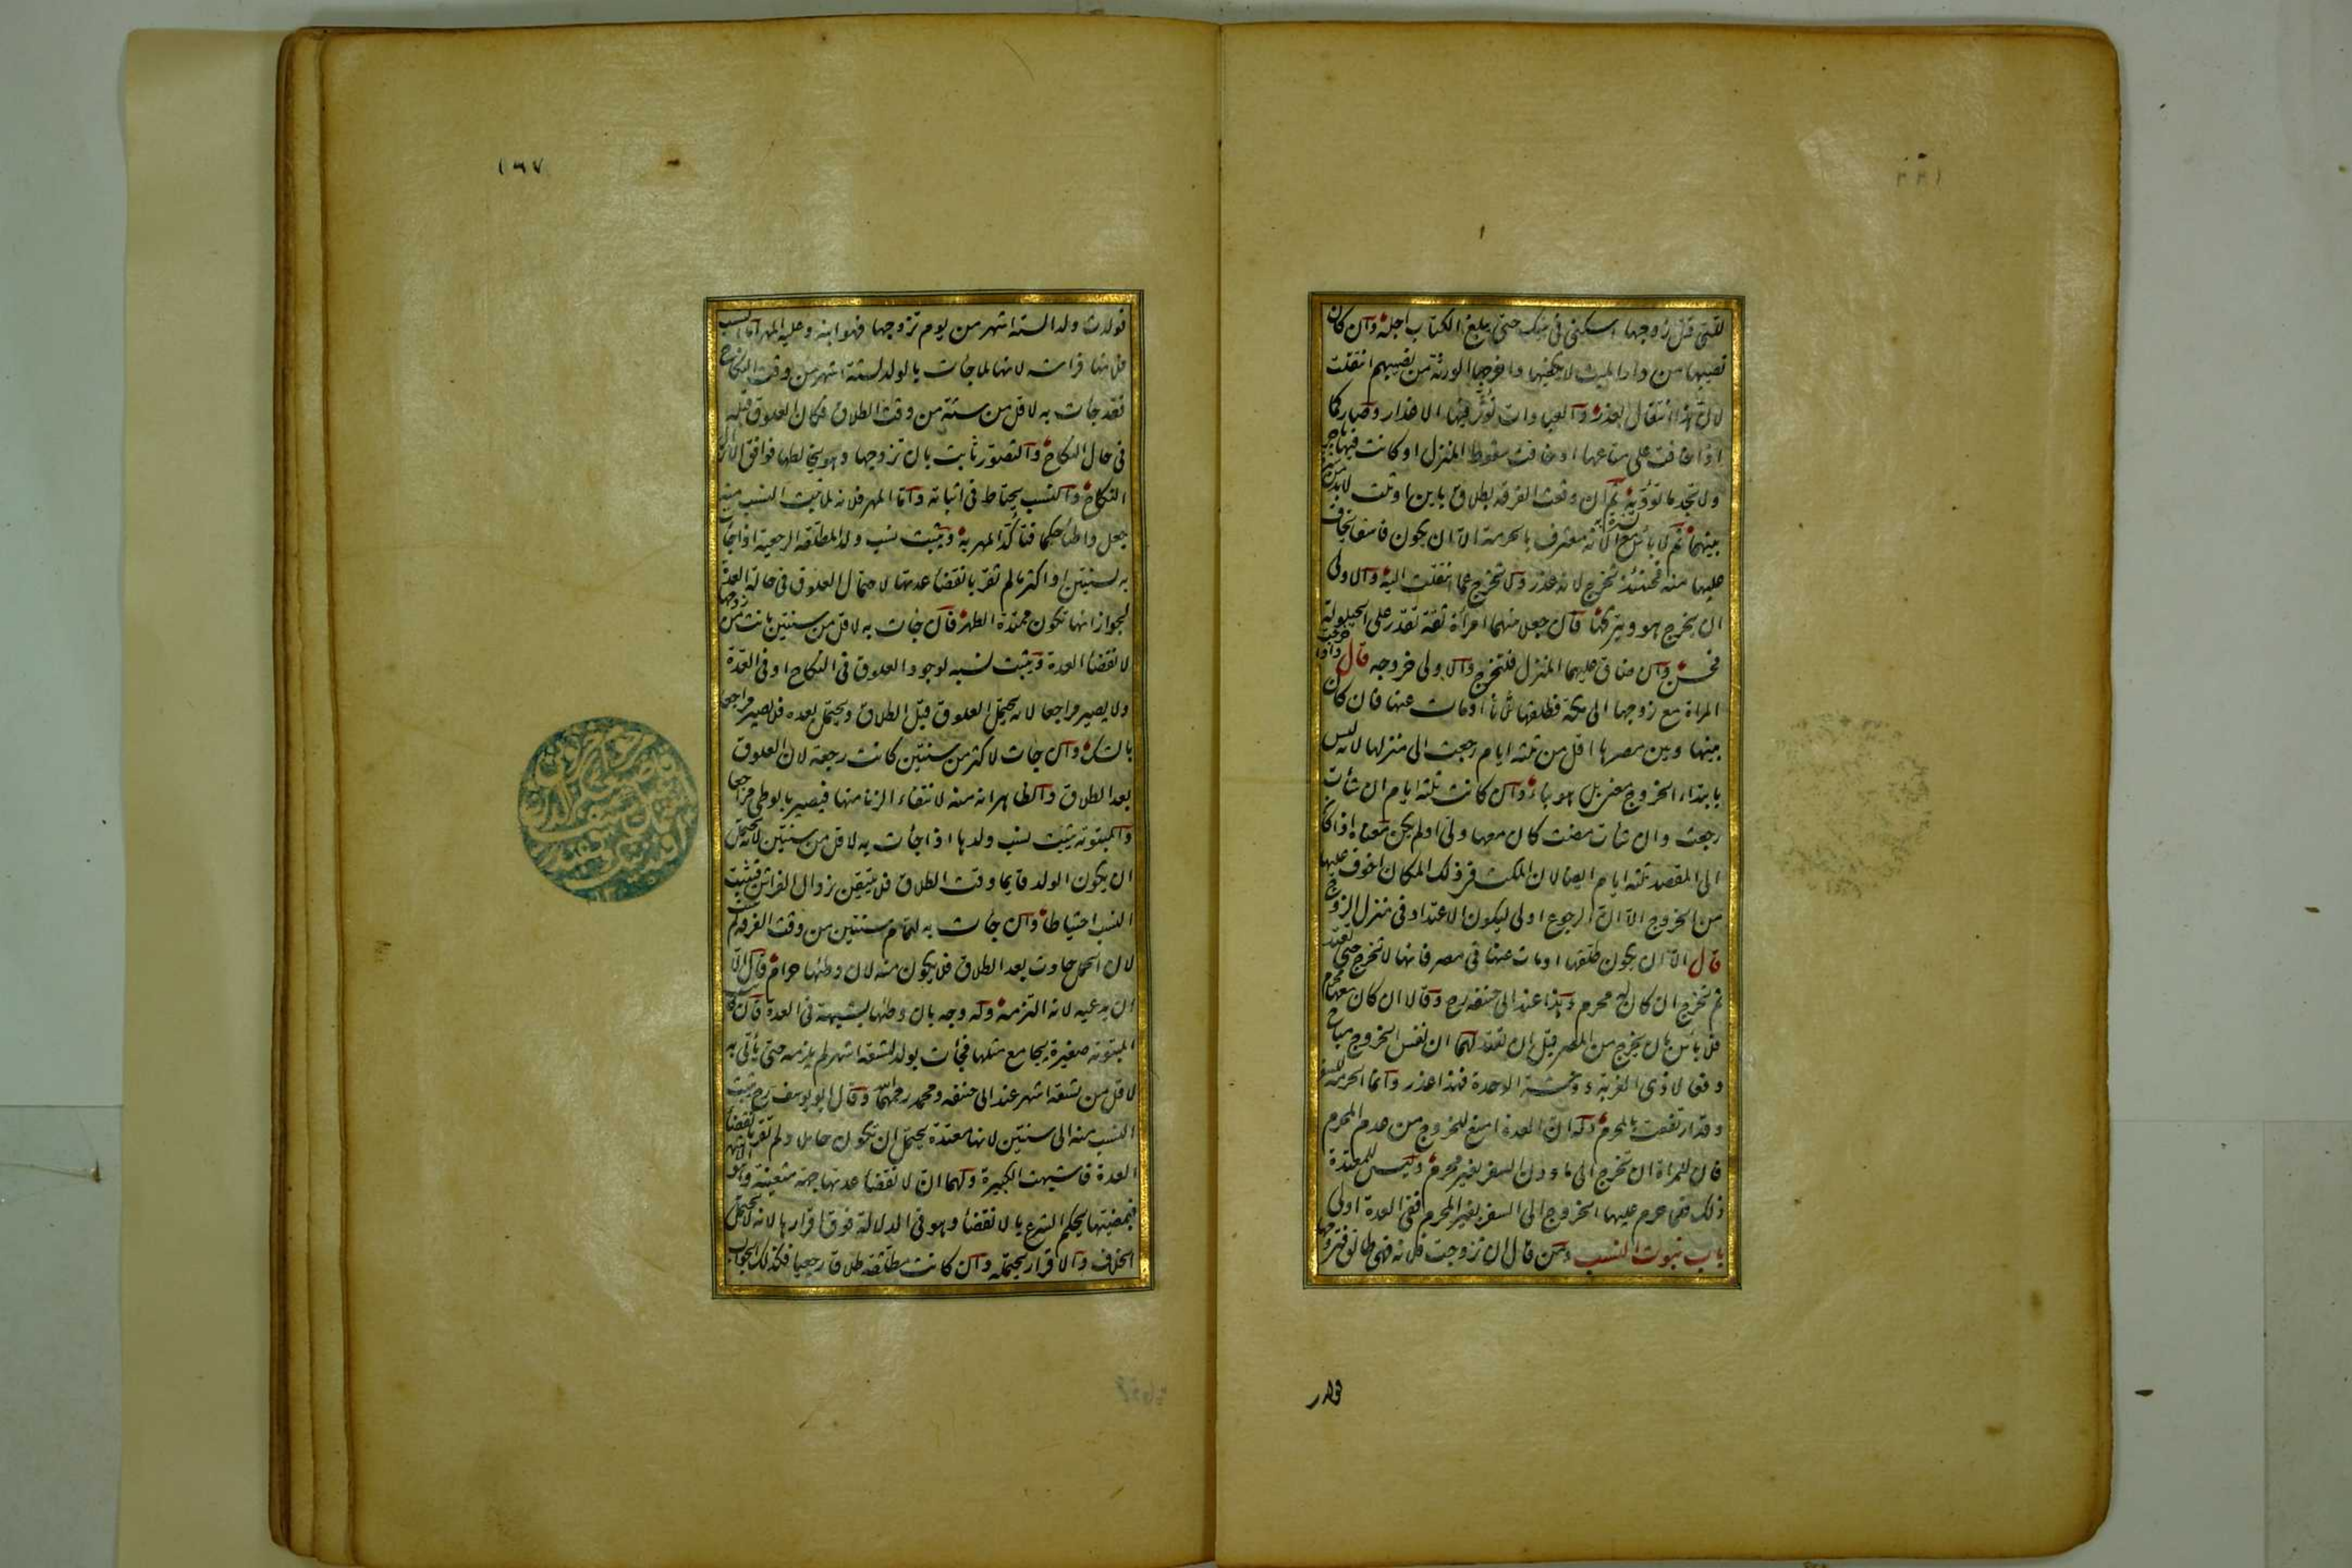 للتی قتل زوجها اسکنی فی بیتک حتی یبلغ الکتاب اجله وان کان
نصیبها من دار المیت لا یکفیها واخرجها الورثة من نصیبهم انتقلت
لان هذا انتقال بعذر والعبادات تؤثر فیها الاعذار وصار کما
اذا خافت علی متاعها او خافت سقوط المنزل او کانت فیها باجر
ولا تجد ما تؤدیه ثم ان وقعت الفرقة بطلاق باین او ثلث لا بد من سترة
بینهما ثم لا بأس به لانه معترف بالحرمة الا ان یکون فاسقا یخاف
علیها منه فحینئذ تخرج لانه عذر ولا تخرج عما انتقلت الیه والاولی
ان یخرج هو ویترکها فان جعلا بینهما امرأة ثقة تقدر علی الحیلولة
فحسن وان ضاق علیهما المنزل فلتخرج والاولی خروجه قال واذا خرجت
المراة مع زوجها الی مکة فطلقها ثلثا او مات عنها فان کان
بینها وبین مصرها اقل من ثلثة ایام رجعت الی منزلها لانه لیس
بابتداء الخروج معنی بل هو بناء وان کانت ثلثة ایام ان شأت
رجعت وان شأت مضت کان معها ولی او لم یکن معناه اذا کان
الی المقصد ثلثة ایام ایضا لان المکث فی ذلک المکان اخوف علیها
من الخروج الا ان الرجوع اولی لیکون الاعتداد فی منزل الزوج
قال الا ان یکون طلقها او مات عنها فی مصر فانها لا تخرج حتی تعتد
ثم تخرج ان کان لها محرم وهذا عند ابی حنیفه رح وقالا ان کان معها محرم
فلا بأس بان یخرج من المصر قبل ان تعتد لهما ان نفس الخروج مباح
دفعا لاذی الغربة ووحشة الوحدة فهذا عذر وانما الحرمة للسفر
وقد ارتفعت بالمحرم وله ان العدة امنع للخروج من عدم المحرم
فان للمراة ان تخرج الی ما دون السفر بغیر محرم ولیس للمعتدة
ذلک فلما حرم علیها الخروج الی السفر بغیر المحرم ففی العدة اولی
باب ثبوت النسب ومن قال ان تزوجت فلانه فهی طالق فتزوجها
فولدت
١٦٧
فولدت ولدا لستة اشهر من یوم تزوجها فهو ابنه وعلیه المهر اما النسب
فلانها فراشه لانها لما جات بالولد لستة اشهر من وقت النکاح
فقد جات به لاقل من ستة من وقت الطلاق فکان العلوق قبله
فی حال النکاح والتصور ثابت بان تزوجها وهو یخالطها فوافق الانزال
النکاح والنسب یحتاط فی اثباته واما المهر فلانه لما ثبت النسب منه
جعل واطئا حکما فتأکد المهر به ویثبت نسب ولد المطلقة الرجعیة اذا جأت
به لسنتین او اکثر ما لم تقر بانقضا عدتها لاحتمال العلوق فی حالة العدة
لجواز انها تکون ممتدة الطهر فان جات به لاقل من سنتین بانت من زوجها
لانقضا العدة ویثبت نسبه لوجود العلوق فی النکاح او فی العدة
ولا یصیر مراجعا لانه یحتمل العلوق قبل الطلاق ویحتمل بعده فلا یصیر مراجعا
بالشک وان جات لاکثر من سنتین کانت رجعة لان العلوق
بعد الطلاق والظاهر انه منه لانتفاء الزنا منها فیصیر بالوطی مراجعا
والمبتوتة یثبت نسب ولدها اذا جأت به لاقل من سنتین لانه یحتمل
ان یکون الولد قایما وقت الطلاق فلا یتیقن بزوال الفراش فیثبت
النسب احتیاطا وان جات به لتمام سنتین من وقت الفرقة لم یثبت
لان الحمل حادث بعد الطلاق فلا یکون منه لان وطئها حرام قال الا
ان یدعیه لانه التزمه وله وجه بان وطئها بشبهة فی العدة فان کانت
المبتوتة صغیرة یجامع مثلها فجأت بولد لتسعة اشهر لم یلزمه حتی یأتی به
لاقل من تسعة اشهر عند ابی حنیفه ومحمد رحمهما الله وقال ابو یوسف رح یثبت
النسب منه الی سنتین لانها معتدة یحتمل ان تکون حاملا ولم تقر بانقضا
العدة فاشبهت الکبیرة ولهما ان لانقضا عدتها جهة متعینة وهو الاشهر
فبمضیها یحکم الشرع بالانقضا وهو فی الدلالة فوق اقرارها لانه لا یحتمل
الخلاف والاقرار یحتمله وان کانت مطلقة طلاقا رجعیا فکذلک الجواب